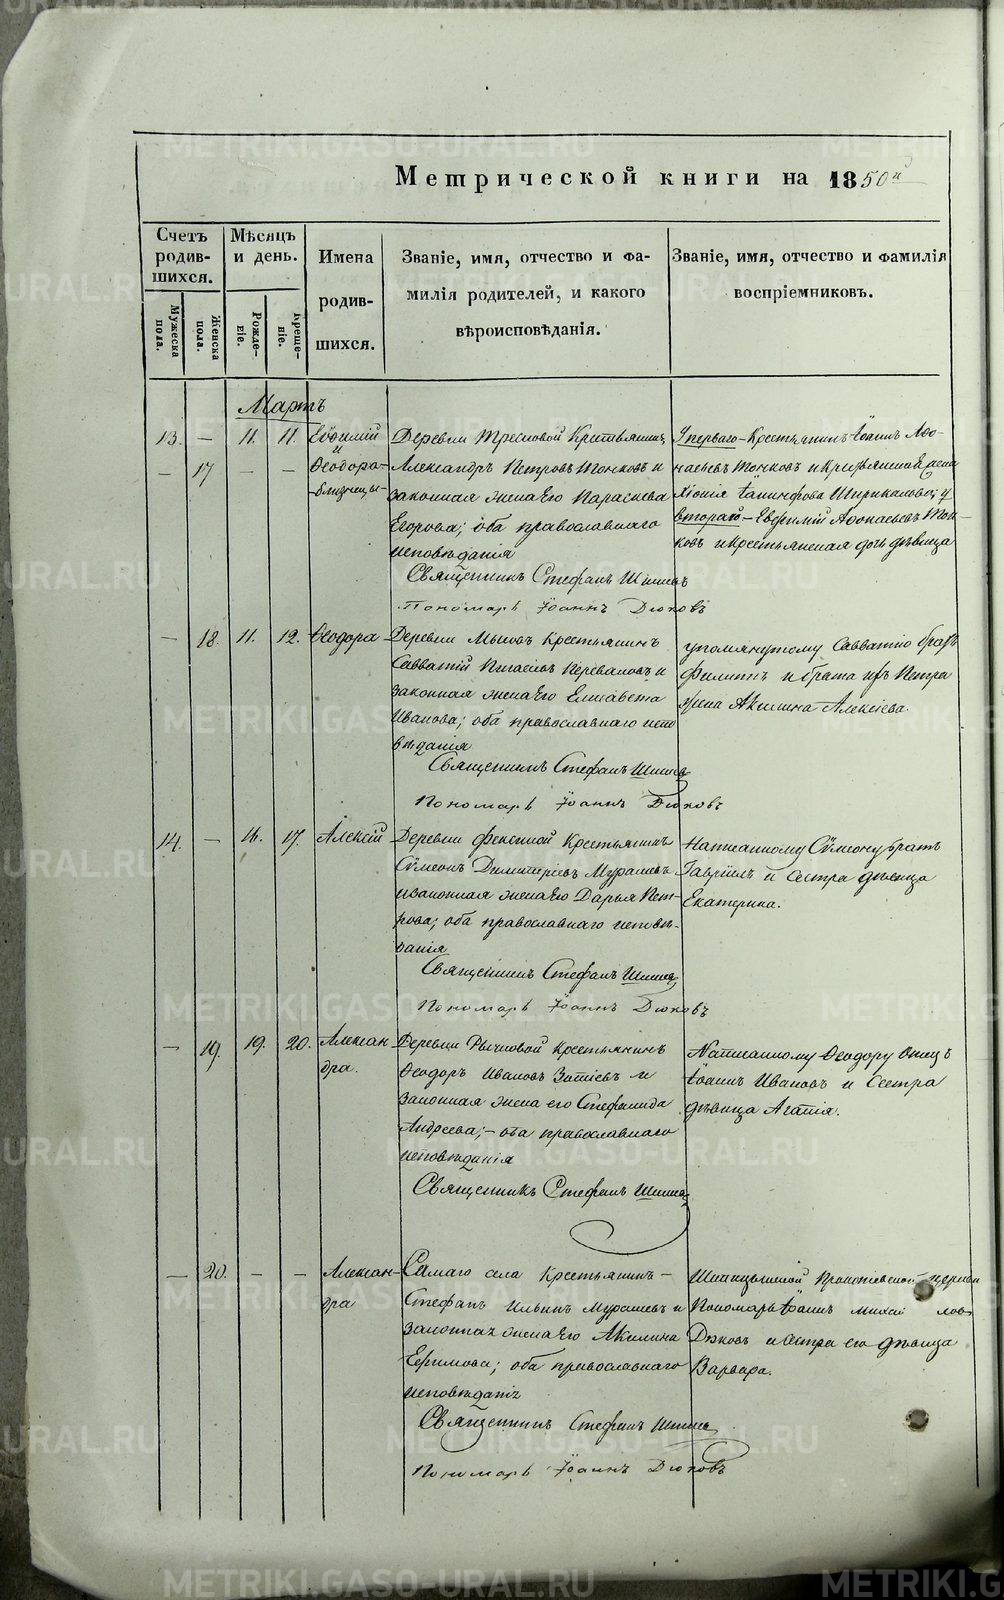 Метрической книги на 1850й
Счетъ родив-шихся.
Мужеска пола.
Женска пола.
Мѣсяцъ и день.
Рожде-ніе.
Креще-ніе.
Имена
родив-
шихся.
Званіе, имя, отчество и фа-
милія родителей, и какого
вѣроисповѣданія.
Званіе, имя, отчество и фамилія
воспріемниковъ.
Мартъ
13. — 11. 11. Евфимій
и
— 17 — — Ѳеодора
близнецы
Деревни Крестьянинъ
Александръ Петровъ Тонковъ и
законная жена Его Параскева
Егорова; оба православнаго
исповѣданія
Священникъ Стефанъ
Пономарь Іоаннъ Дюковъ
У перваго — Крестьянинъ Іоаннъ Аѳо-
насьевъ Тонковъ и
у
втораго — Евфимій Аѳонасьевъ Тон-
ковъ и крестьянская дочь дѣвица
— 18. 11. 12. Ѳеодора
Деревни Мысовъ Крестьянинъ
Савватій Переваловъ и
законная жена Его Елисавета
Иванова; оба православнаго испо
вѣданія
Священникъ Стефанъ
Пономарь Іоаннъ Дюковъ
упомянутому Савватію братъ
Филиппъ и брата ихъ Петра
жена Акилина Алексіева.
14. — 16. 17. Алексій
Деревни Крестьянинъ
Сѵмеонъ Димитріевъ Мурашевъ
и законная жена Его Дарья Пет-
рова; оба православнаго исповѣ-
данія
Священникъ Стефанъ
Пономарь Іоаннъ Дюковъ
Написанному Сѵмеону братъ
Гавріилъ и сестра дѣвица
Екатерина.
— 19. 19. 20. Алексан
дра.
Деревни Рычковой крестьянинъ
Ѳеодоръ Ивановъ и
законная жена его Стефанида
Андреева; — оба православнаго
исповѣданія
Священникъ Стефанъ
Написанному Ѳеодору
Іоаннъ Ивановъ и сестра
дѣвица Агапія.
— 20. — — Алексан-
дра
Самаго села Крестьянинъ —
Стефанъ Ильинъ Мурашевъ и
законная жена Его Акилина
Ефимова; оба православнаго
исповѣданія
Священникъ Стефанъ
Пономарь Іоаннъ Дюковъ
церкви
Пономарь Іоаннъ Михайловъ
Дюковъ и сестра его дѣвица
Варвара.
METRIKI.GASO-URAL.RU